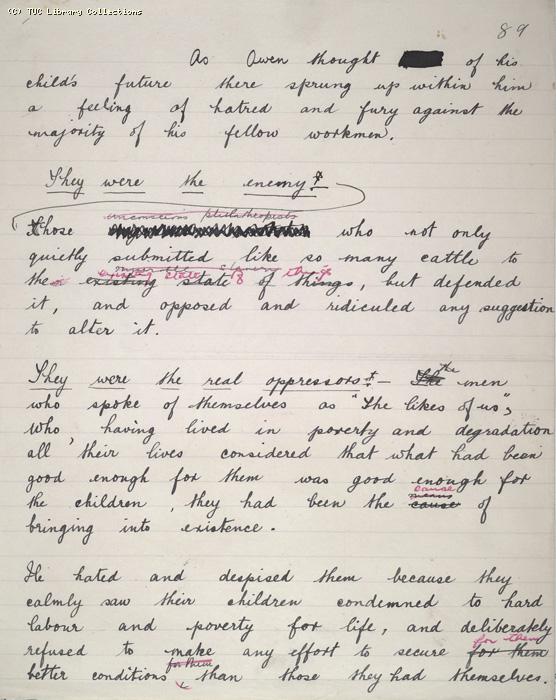 (C) TUC Library Collections
89
As Owen thought of his
child's future there sprung up within him
a feeling of hatred and fury against the
majority of his fellow workmen.
They were the enemy
unconscious philanthropists
Those who not only
quietly submitted like so many cattle to
existing state of things
the existing state of things, but defended
it, and opposed and ridiculed any suggestion
to alter it.
They were the real oppressors – The the men
who spoke of themselves as "The likes of us",
Who, having lived in poverty and degradation
all their lives considered that what had been
good enough for them was good enough for
cause
means
the children, they had been the cause of
bringing into existence.
He hated and despised them because they
calmly saw their children condemned to hard
labour and poverty for life, and deliberately
for them
refused to make any effort to secure for them
for them
better conditions than those they had themselves.